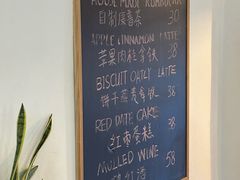 HOUSE MADE KOMBUCHA
自制康普茶 30
APPLE CINNAMON LATTE
苹果肉桂拿铁 38
BISCUIT OATLY LATTE
饼干燕麦拿铁 38
RED DATE CAKE
红枣蛋糕 38
MULLED WINE
热红酒 58